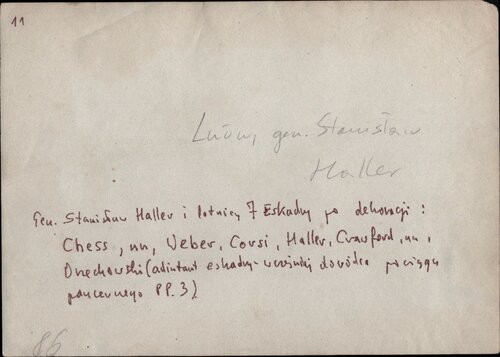 11
Lwów, gen. Stanisław
Haller
Gen. Stanisław Haller i lotnicy 7 Eskadry po dekoracji:
Chess, nn, Weber, Corsi, Haller, Crawford, nn,
Orzechowski (adiutant eskadry - wcześniej dowódca pociągu
pancernego PP. 3)
86